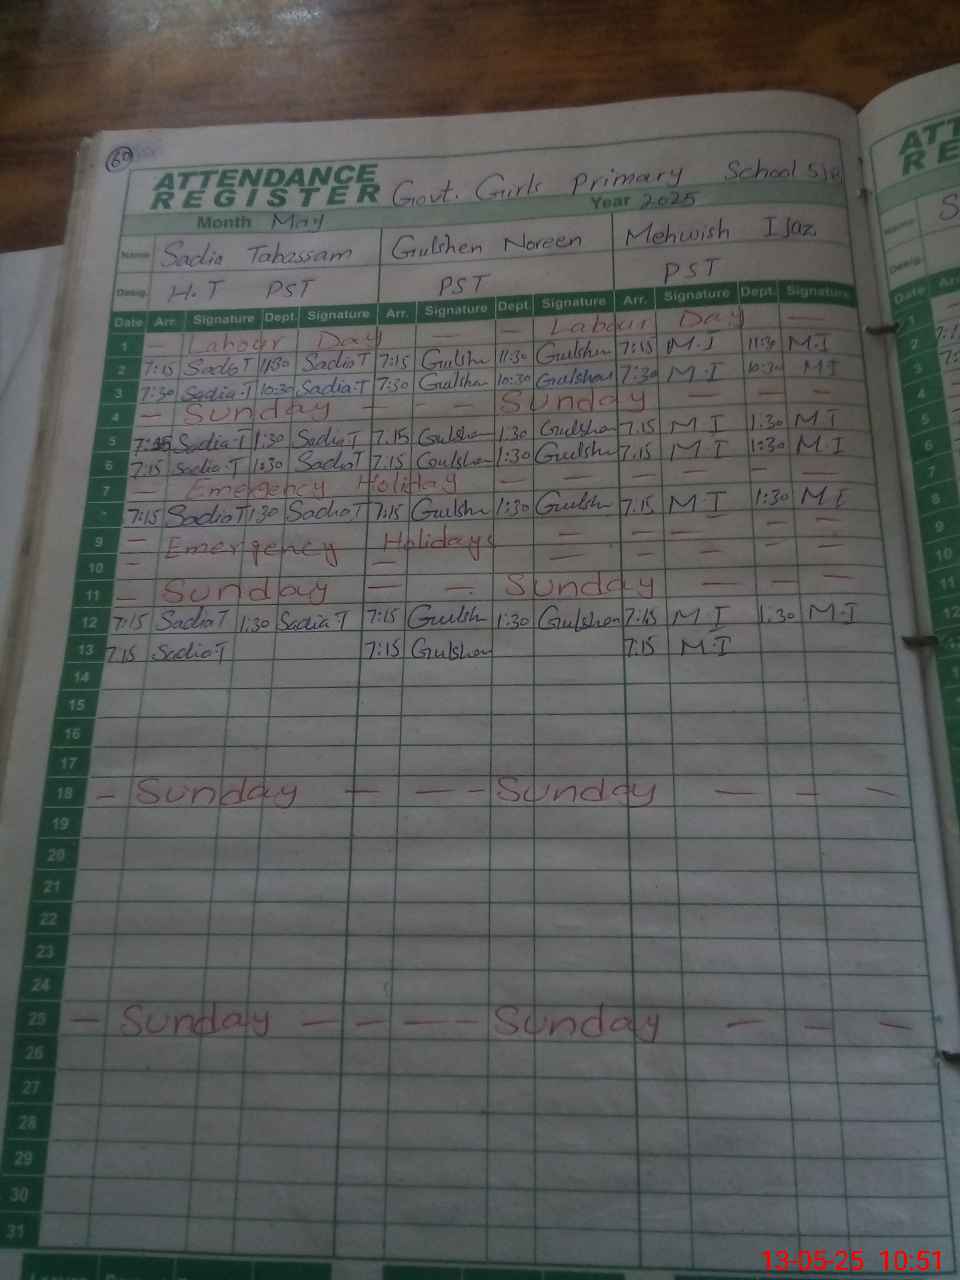 60
ATTENDANCE
REGISTER Govt. Girls Primary School
Month May Year 2025
Name Sadia Tabassam Gulshen Noreen Mehwish Ijaz
Desig. H.T PST PST PST
Date Arr. Signature Dept. Signature Arr. Signature Dept. Signature Arr. Signature Dept. Signature
1 — Labour Day — — — Labour Day —
2 7:15 Sadia T 11:30 Sadia T 7:15 Gulshen 11:30 Gulshen 7:15 M.I 11:30 M.I
3 7:30 Sadia.T 10:30 Sadia.T 7:30 Gulshen 10:30 Gulshen 7:30 M.I 10:30 M.I
4 — Sunday — — — Sunday — — —
5 7:15 Sadia.T 1:30 Sadia T 7.15 Gulshen 1:30 Gulshen 7.15 M I 1:30 M.I
6 7:15 Sadia.T 1:30 Sadia T 7.15 Gulshen 1:30 Gulshen 7.15 M I 1:30 M.I
7 — Emergency Holiday — — — — — —
7:15 Sadia T 1:30 Sadia T 7:15 Gulshen 1:30 Gulshen 7.15 M I 1:30 M I
9 — Emergency Holidays — — — — —
10 — — — — — — —
11 — Sunday — — Sunday — — —
12 7:15 Sadia T 1:30 Sadia T 7:15 Gulshen 1:30 Gulshen 7:15 M I 1:30 M.I
13 7:15 Sadia.T 7:15 Gulshen 7:15 M.I
14
15
16
17
18 — Sunday — — — Sunday — — —
19
20
21
22
23
24
25 — Sunday — — — — Sunday — — —
26
27
28
29
30
31
ATT
RE
Name S
Desig.
Date Arr.
1
2
3
4
5
6
7
8
9
10
11
12
13-05-25 10:51